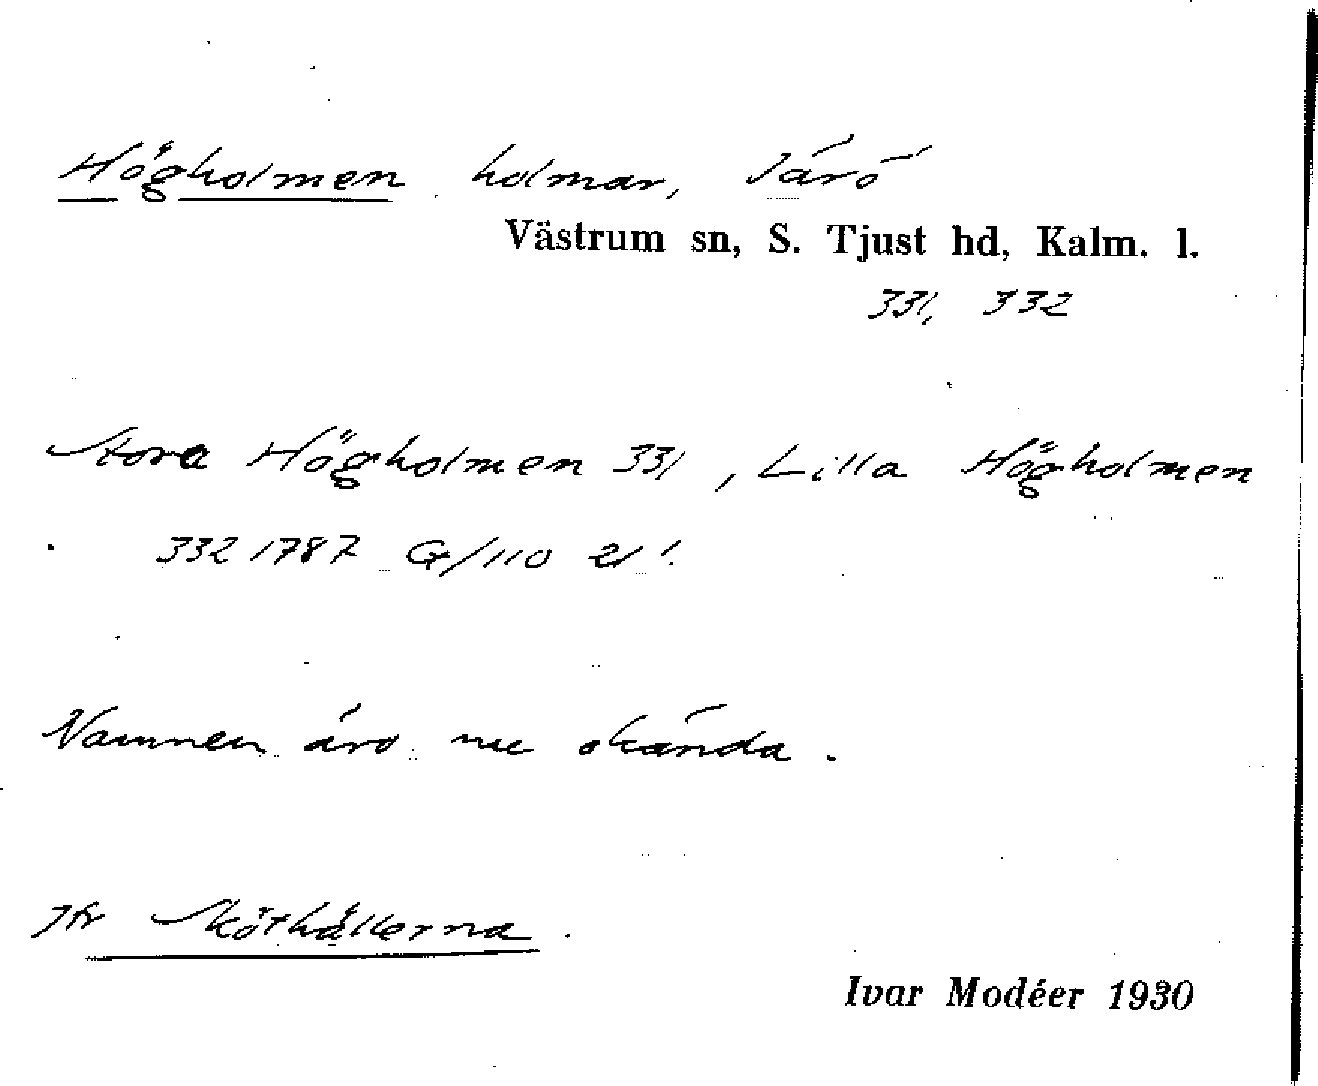 Högholmen holmar, Järö
Västrum sn, S. Tjust hd, Kalm. l.
331, 332
Stora Högholmen 331, Lilla Högholmen
332 1787 G/110 21!
Namnen äro nu okända.
Jfr Sköthällerna.
Ivar Modéer 1930